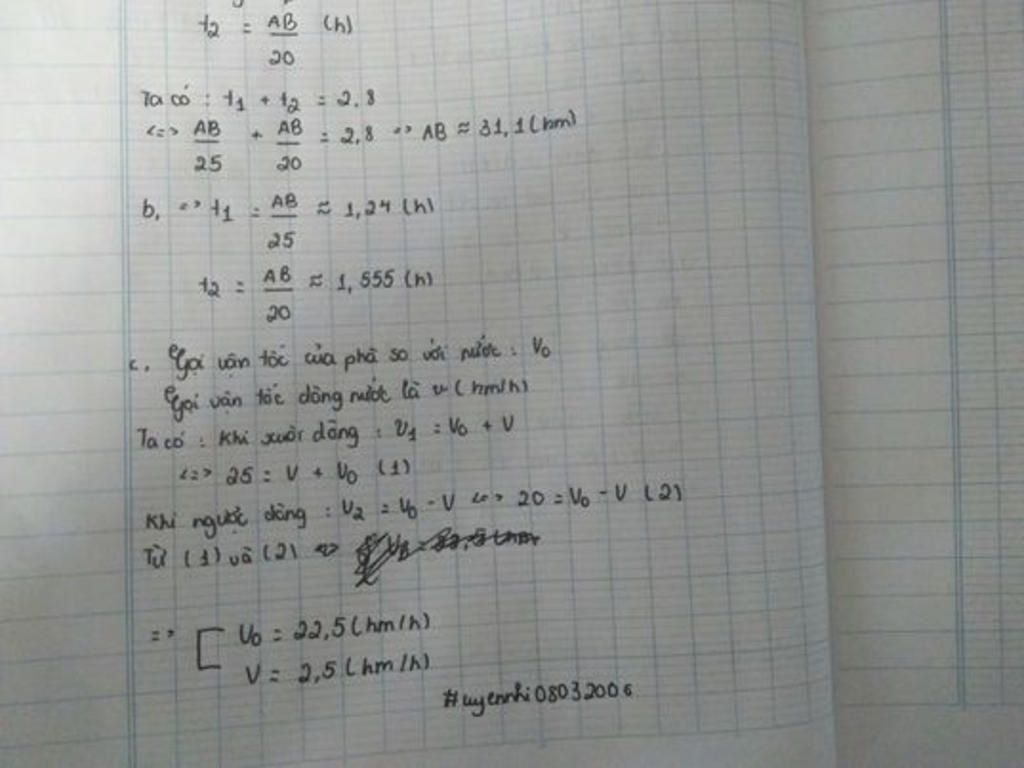 t2 = AB/20 (h)
Ta có : t1 + t2 = 2,8
<=> AB/25 + AB/20 = 2,8 => AB ≈ 31,1 (km)
b, => t1 = AB/25 ≈ 1,24 (h)
t2 = AB/20 ≈ 1,555 (h)
c, Gọi vận tốc của phà so với nước : V0
Gọi vận tốc dòng nước là v (km/h)
Ta có : Khi xuôi dòng : V1 = V0 + V
<=> 25 = V + V0 (1)
Khi ngược dòng : V2 = V0 - V <=> 20 = V0 - V (2)
Từ (1) và (2) =>
=> [ V0 = 22,5 (km/h)
V = 2,5 (km/h)
#uyennhi08032006